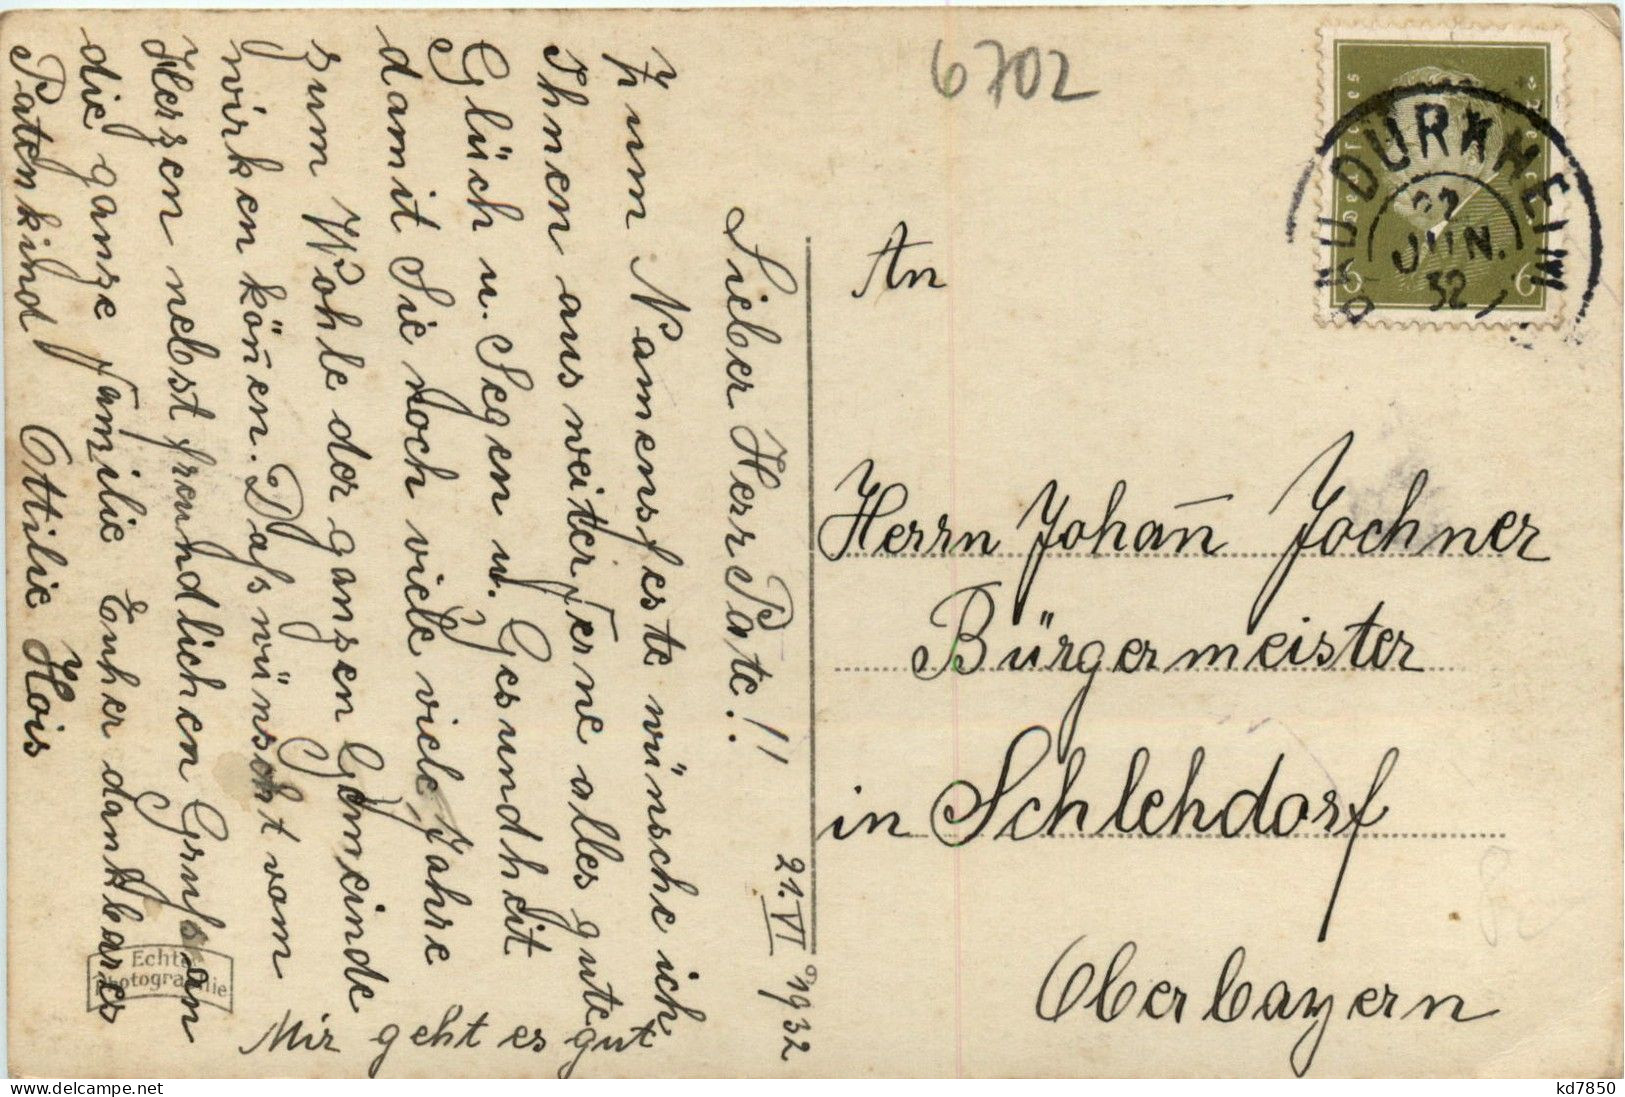 6702
Deutsches Reich
6 6
BAD DÜRKHEIM
22
JUN.
32
21. VI 1932
Lieber Herr Pate!!
Zum Namensfeste wünsche ich
Ihnen aus weiter Ferne alles gute
Glück u. Segen u. Gesundheit
damit Sie noch viele viele Jahre
zum Wohle der ganzen Gemeinde
wirken kön̄en. Daſs wünscht vom
Herzen nebst freundlichen Gruſs an
die ganze Familie Euher dankbares
Patenkind Ottilie Hois
Mir geht es gut
An
Herrn Johan̄ Jochner
Bürgermeister
in Schlehdorf
Oberbayern
Echte
Photographie
kd7850